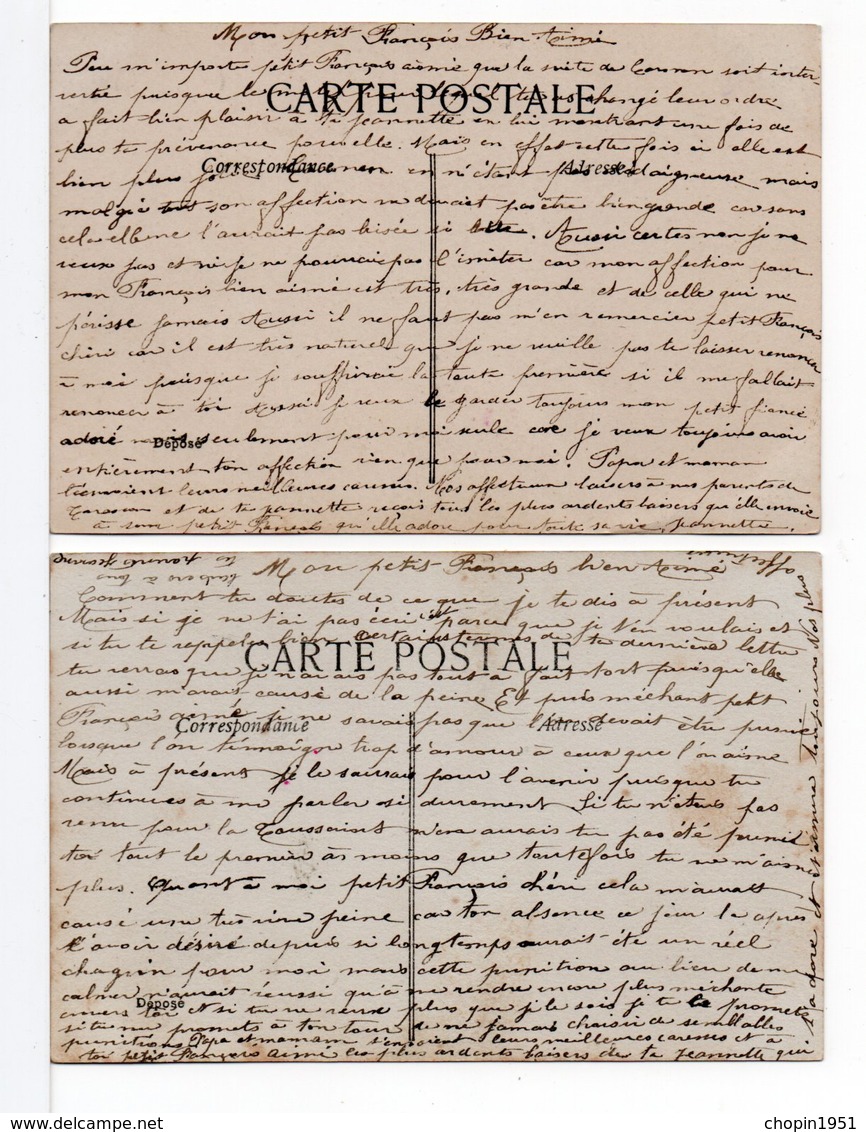 Mon petit François Bien Aimé
Peu m'importe petit François aimé que la suite de Carmen soit inter-
vertie puisque le changé leur ordre
CARTE POSTALE
a fait bien plaisir à ta Jeannette en lui montrant une fois de
plus ta prévenance pour elle. Mais en effet cette fois ci elle est
Correspondance Adresse
bien plus Carmen en n'étant pas dédaigneuse mais
malgré tout son affection ne devait pas être bien grande car sans
cela elle ne l'aurait pas laissée si. Aussi certes non je ne
veux pas et je ne pourrais pas l'imiter car mon affection pour
mon François bien aimé est très, très grande et de celle qui ne
périsse jamais Aussi il ne faut pas m'en remercier petit François
chéri car il est très naturel que je ne veuille pas te laisser renoncer
à moi puisque je souffrirai la toute première si il me fallait
renoncer à toi Aussi je veux le garder toujours mon petit fiancé
adoré mais seulement pour moi seule car je veux toujours avoir
Déposé
entièrement ton affection rien que pour moi. Papa et maman
t'envoient leurs meilleures caresses. Nos affectueux baisers à nos parents de
et de ta Jeannette reçois tous les plus ardents baisers qu'elle envoie
à son petit François qu'elle adore pour toute sa vie. Jeannette.
Mon petit François bien Aimé
Comment tu doutes de ce que je te dis à présent
Mais si je ne t'ai pas écrit c'est parce que je t'en voulais et
si tu te rappelles bien certains termes de ta dernière lettre
CARTE POSTALE
tu verras que je n'avais pas tout à fait tort puisqu'elle
aussi m'avait causé de la peine Et puis méchant petit
François aimé je ne savais pas que l'on devait être punie
Correspondance Adresse
lorsque l'on témoigne trop d'amour à ceux que l'on aime
Mais à présent je le saurai pour l'avenir puisque tu
continues à me parler si durement Si tu n'étais pas
venu pour la Toussaint n'en aurais tu pas été puni
toi tout le premier à moins que toutefois tu ne m'aimes
plus. Quant à moi petit François chéri cela m'aurait
causé une très vive peine car ton absence ce jour là après
t'avoir désiré depuis si longtemps aurait été un réel
chagrin pour moi mais cette punition au lieu de me
calmer n'aurait réussi qu'à me rendre encore plus méchante
Déposé
envers toi Et si tu ne veux plus que je le sois je te le promets
si tu me promets à ton tour de ne jamais choisir de semblables
punitions Papa et maman t'envoient leurs meilleures caresses et à
toi petit François aimé les plus ardents baisers de ta Jeannette qui
t'adore et t'aimera toujours Nos plus
affectueux
baisers à nos
www.delcampe.net chopin1951